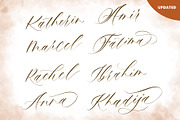 UPDATED
Katherin Amir
Marcel Fatima
Rachel Ibrahim
Anna Khadija